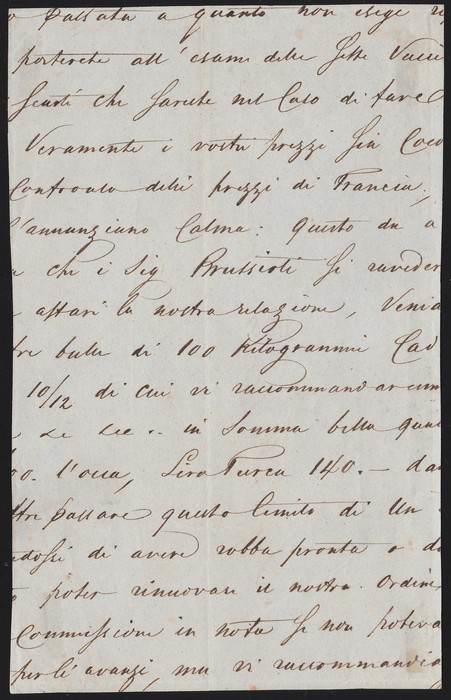 o passata a quanto non esige ri
porterete all' esame delle sette Vacci
Scudi che sareste nel Caso di fare
Veramente i vostri prezzi sin Coco
Controuato delli prezzi di Francia,
s'annunziano Calma: questo da a
a che i Sig Brussioti si raveder
affari la nostra relazione, Venia
tre balle di 100 Kilogrammi Cad
10/12 di cui vi raccommandar
in Somma bella qua
00. l'occa, Lira Turca 140. — da
ltre passare questo limito di Un
dossi di avere robba pronta o d
o poter rinnovare il nostro Ordine
Commissione in nota se non poteva
per li avanzi, ma vi raccommandia